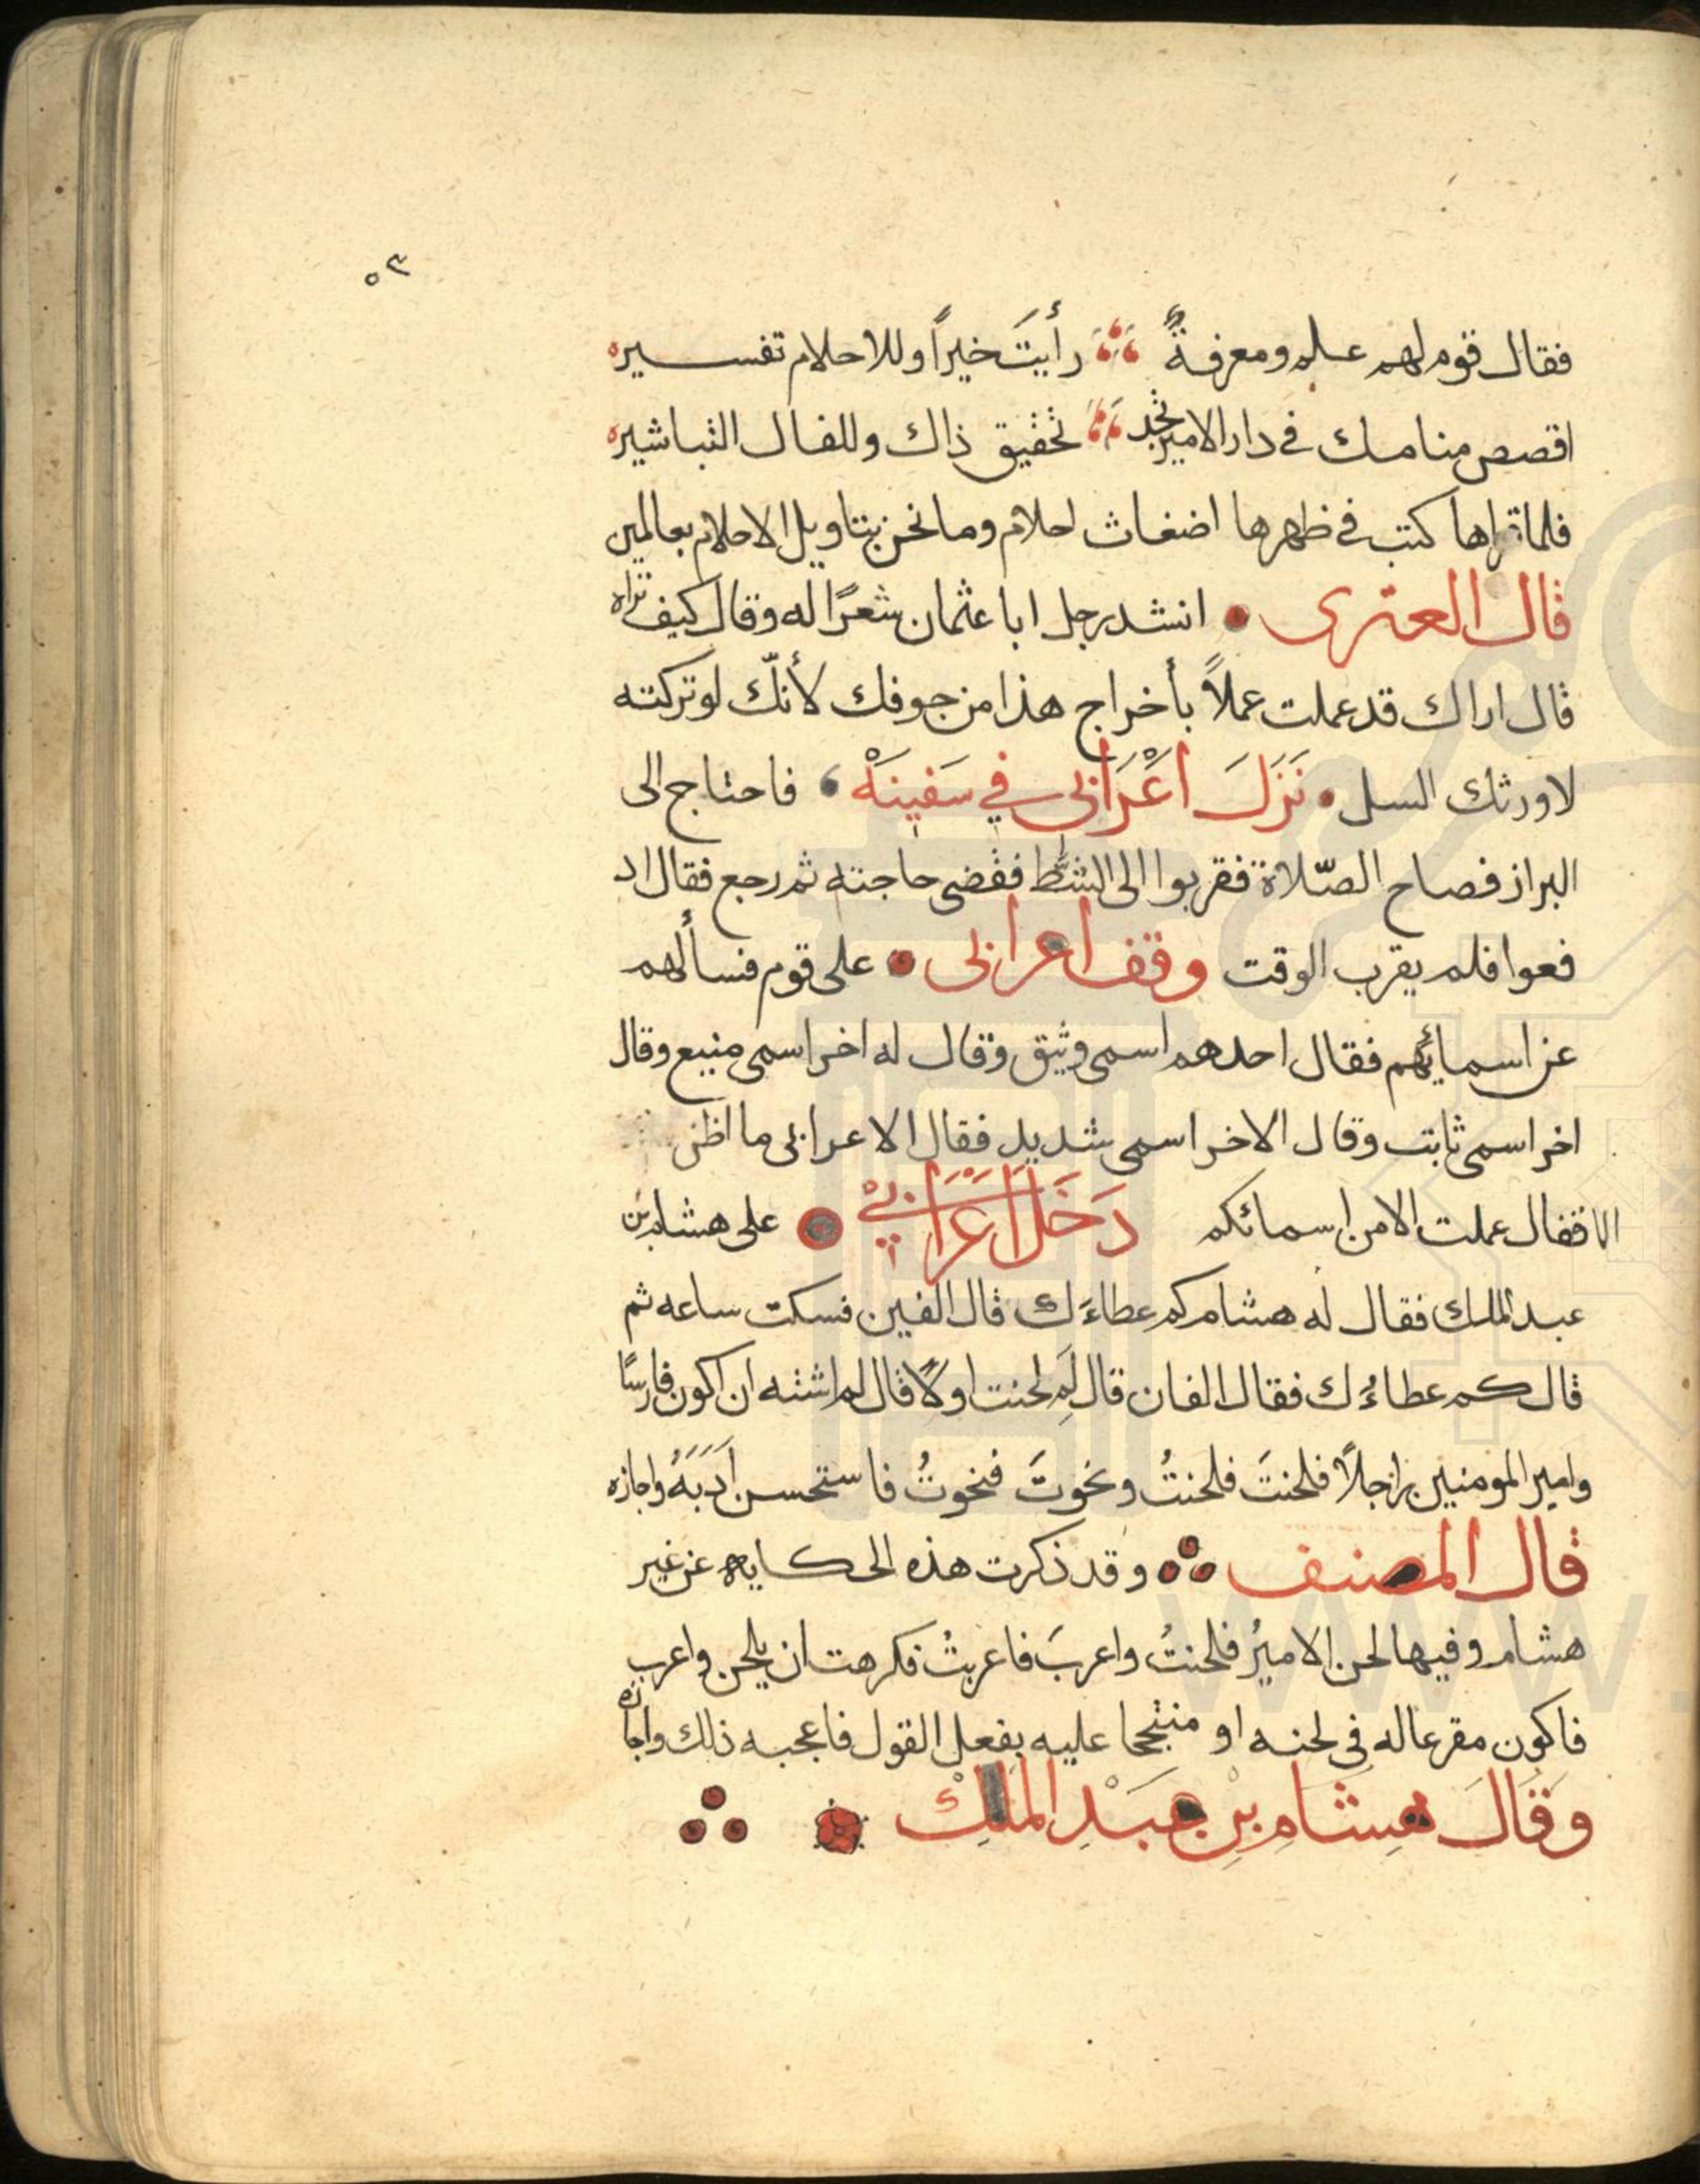 ٥٣
فقال قوم لهم علم ومعرفةٌ رأيتَ خيراً وللاحلام تفسيره
اقصص منامك في دار الامير تجد تحقيق ذاك وللفال التباشيره
فلما قراها كتب في ظهرها اضغاث احلام وما نحن بتاويل الاحلام بعالمين
قال العترى انشد رجل ابا عثمان شعرًا له وقال كيف تراه
قال اراك قد عملت عملاً بأخراج هذا من جوفك لأنّك لو تركته
لاورثك السل نَزَلَ اَعْرَابى في سَفينَهْ فاحتاج الى
البراز فصاح الصّلاة فقربوا الى الشطّ فقضى حاجته ثم رجع فقال اد
فعوا فلم يقرب الوقت وقف اعرابى على قوم فسألهم
عن اسمائهم فقال احدهم اسمى وثيق وقال له اخر اسمى منيع وقال
اخر اسمى ثابت وقال الاخر اسمى شديد فقال الاعرابى ما اظن
الاقفال عملت الا من اسمائكم دَخَلَ اَعْرَابيْ على هشام بن
عبد الملك فقال له هشام كم عطاءَك قال الفين فسكت ساعه ثم
قال كم عطاءُك فقال الفان قال لَمِ لحنت اولًا قال لم اشته ان اكون فارسًا
وامير المومنين راجلاً فلحنتَ فلحنتُ ونحوتَ فنحوتُ فاستحسن اَدَبَهُ واجازه
قال المصنف وقد ذكرت هذه الحكايه عن غير
هشام وفيها لحن الاميرُ فلحنتُ واعربَ فاعربتُ فكرهت ان يلحن واعرب
فاكون مقرعا له في لحنه او منتجحا عليه بفعل القول فاعجبه ذلك واجازه
وَقَالَ هِشَام بِنْ عَبَدْ المَلِكْ